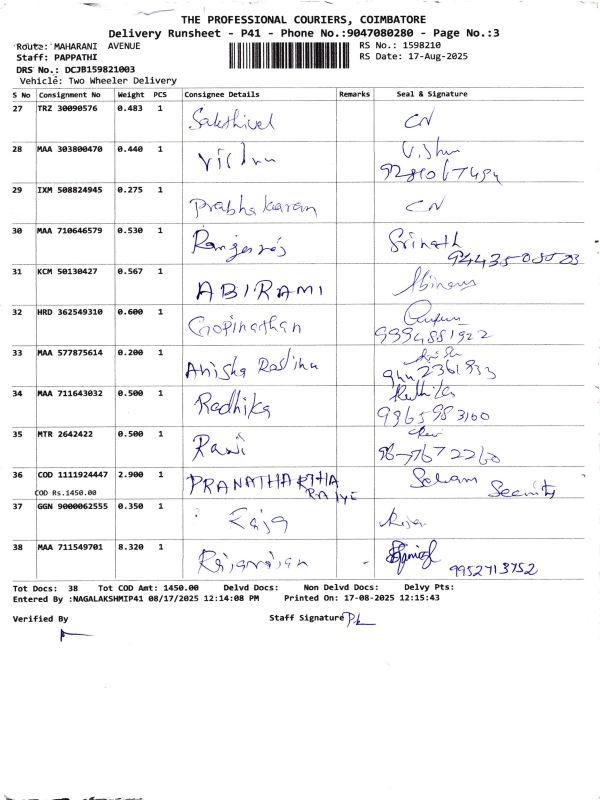 THE PROFESSIONAL COURIERS, COIMBATORE
Delivery Runsheet - P41 - Phone No.:9047080280 - Page No.:3
Route: MAHARANI AVENUE
RS No.: 1598210
Staff: PAPPATHI
RS Date: 17-Aug-2025
DRS No.: DCJB159821003
Vehicle: Two Wheeler Delivery
S No Consignment No Weight PCS Consignee Details Remarks Seal & Signature
27 TRZ 30090576 0.483 1 Sakthivel CN
28 MAA 303800470 0.440 1 Vishnu Vishnu
29 IXM 508824945 0.275 1 Prabhakaran CN
30 MAA 710646579 0.530 1 Srinath
31 KCM 50130427 0.567 1 ABIRAMI
32 HRD 362549310 0.600 1 Gopinathan
9994881922
33 MAA 577875614 0.200 1 Anisha
34 MAA 711643032 0.500 1 Radhika
35 MTR 2642422 0.500 1 Ravi
36 COD 1111924447 2.900 1 PRANATHARTHA
COD Rs.1450.00 Security
37 GGN 9000062555 0.350 1 Raja Raja
38 MAA 711549701 8.320 1 Rajarajan -
9952713752
Tot Docs: 38 Tot COD Amt: 1450.00 Delvd Docs: Non Delvd Docs: Delvy Pts:
Entered By :NAGALAKSHMIP41 08/17/2025 12:14:08 PM Printed On: 17-08-2025 12:15:43
Verified By Staff Signature